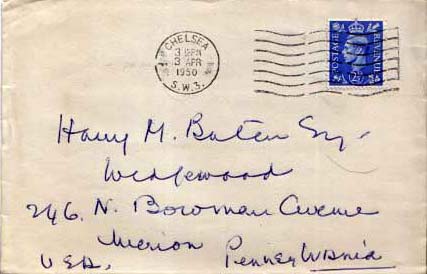 CHELSEA
3 PM
3 APR
1950
S.W.3.
POSTAGE REVENUE
2½D
Harry M. Buten Esq.
Wedgewood
246. N. Bowman Avenue
Merion Pennsylvania
U.S.A.